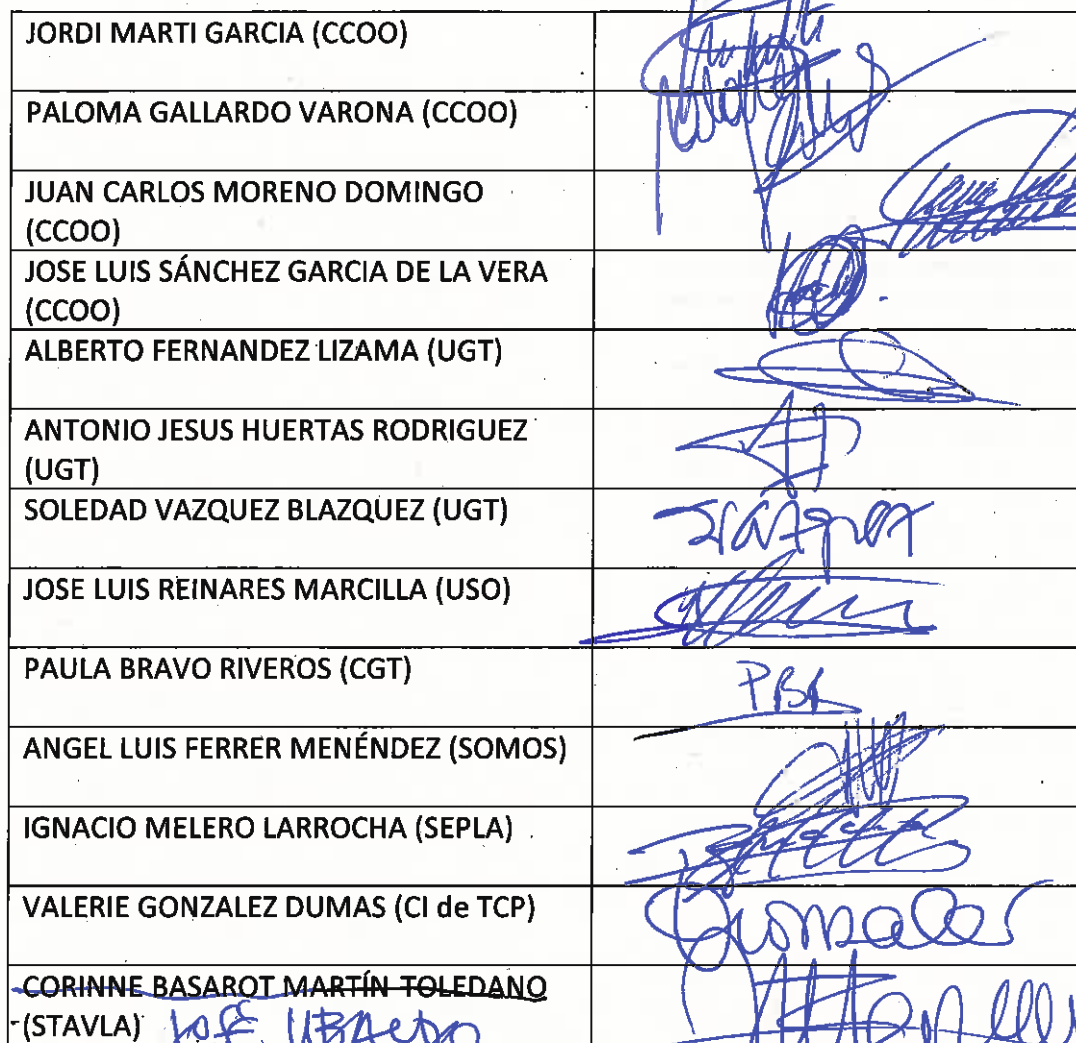 JORDI MARTI GARCIA (CCOO)
PALOMA GALLARDO VARONA (CCOO)
JUAN CARLOS MORENO DOMINGO
(CCOO)
JOSE LUIS SÁNCHEZ GARCIA DE LA VERA
(CCOO)
ALBERTO FERNANDEZ LIZAMA (UGT)
ANTONIO JESUS HUERTAS RODRIGUEZ
(UGT)
SOLEDAD VAZQUEZ BLAZQUEZ (UGT)
Vázquez
JOSE LUIS REINARES MARCILLA (USO)
PAULA BRAVO RIVEROS (CGT)
PBR
ANGEL LUIS FERRER MENÉNDEZ (SOMOS)
IGNACIO MELERO LARROCHA (SEPLA)
VALERIE GONZALEZ DUMAS (CI de TCP)
Gonzalez
CORINNE BASAROT MARTÍN TOLEDANO
(STAVLA) JOSÉ UBALDO